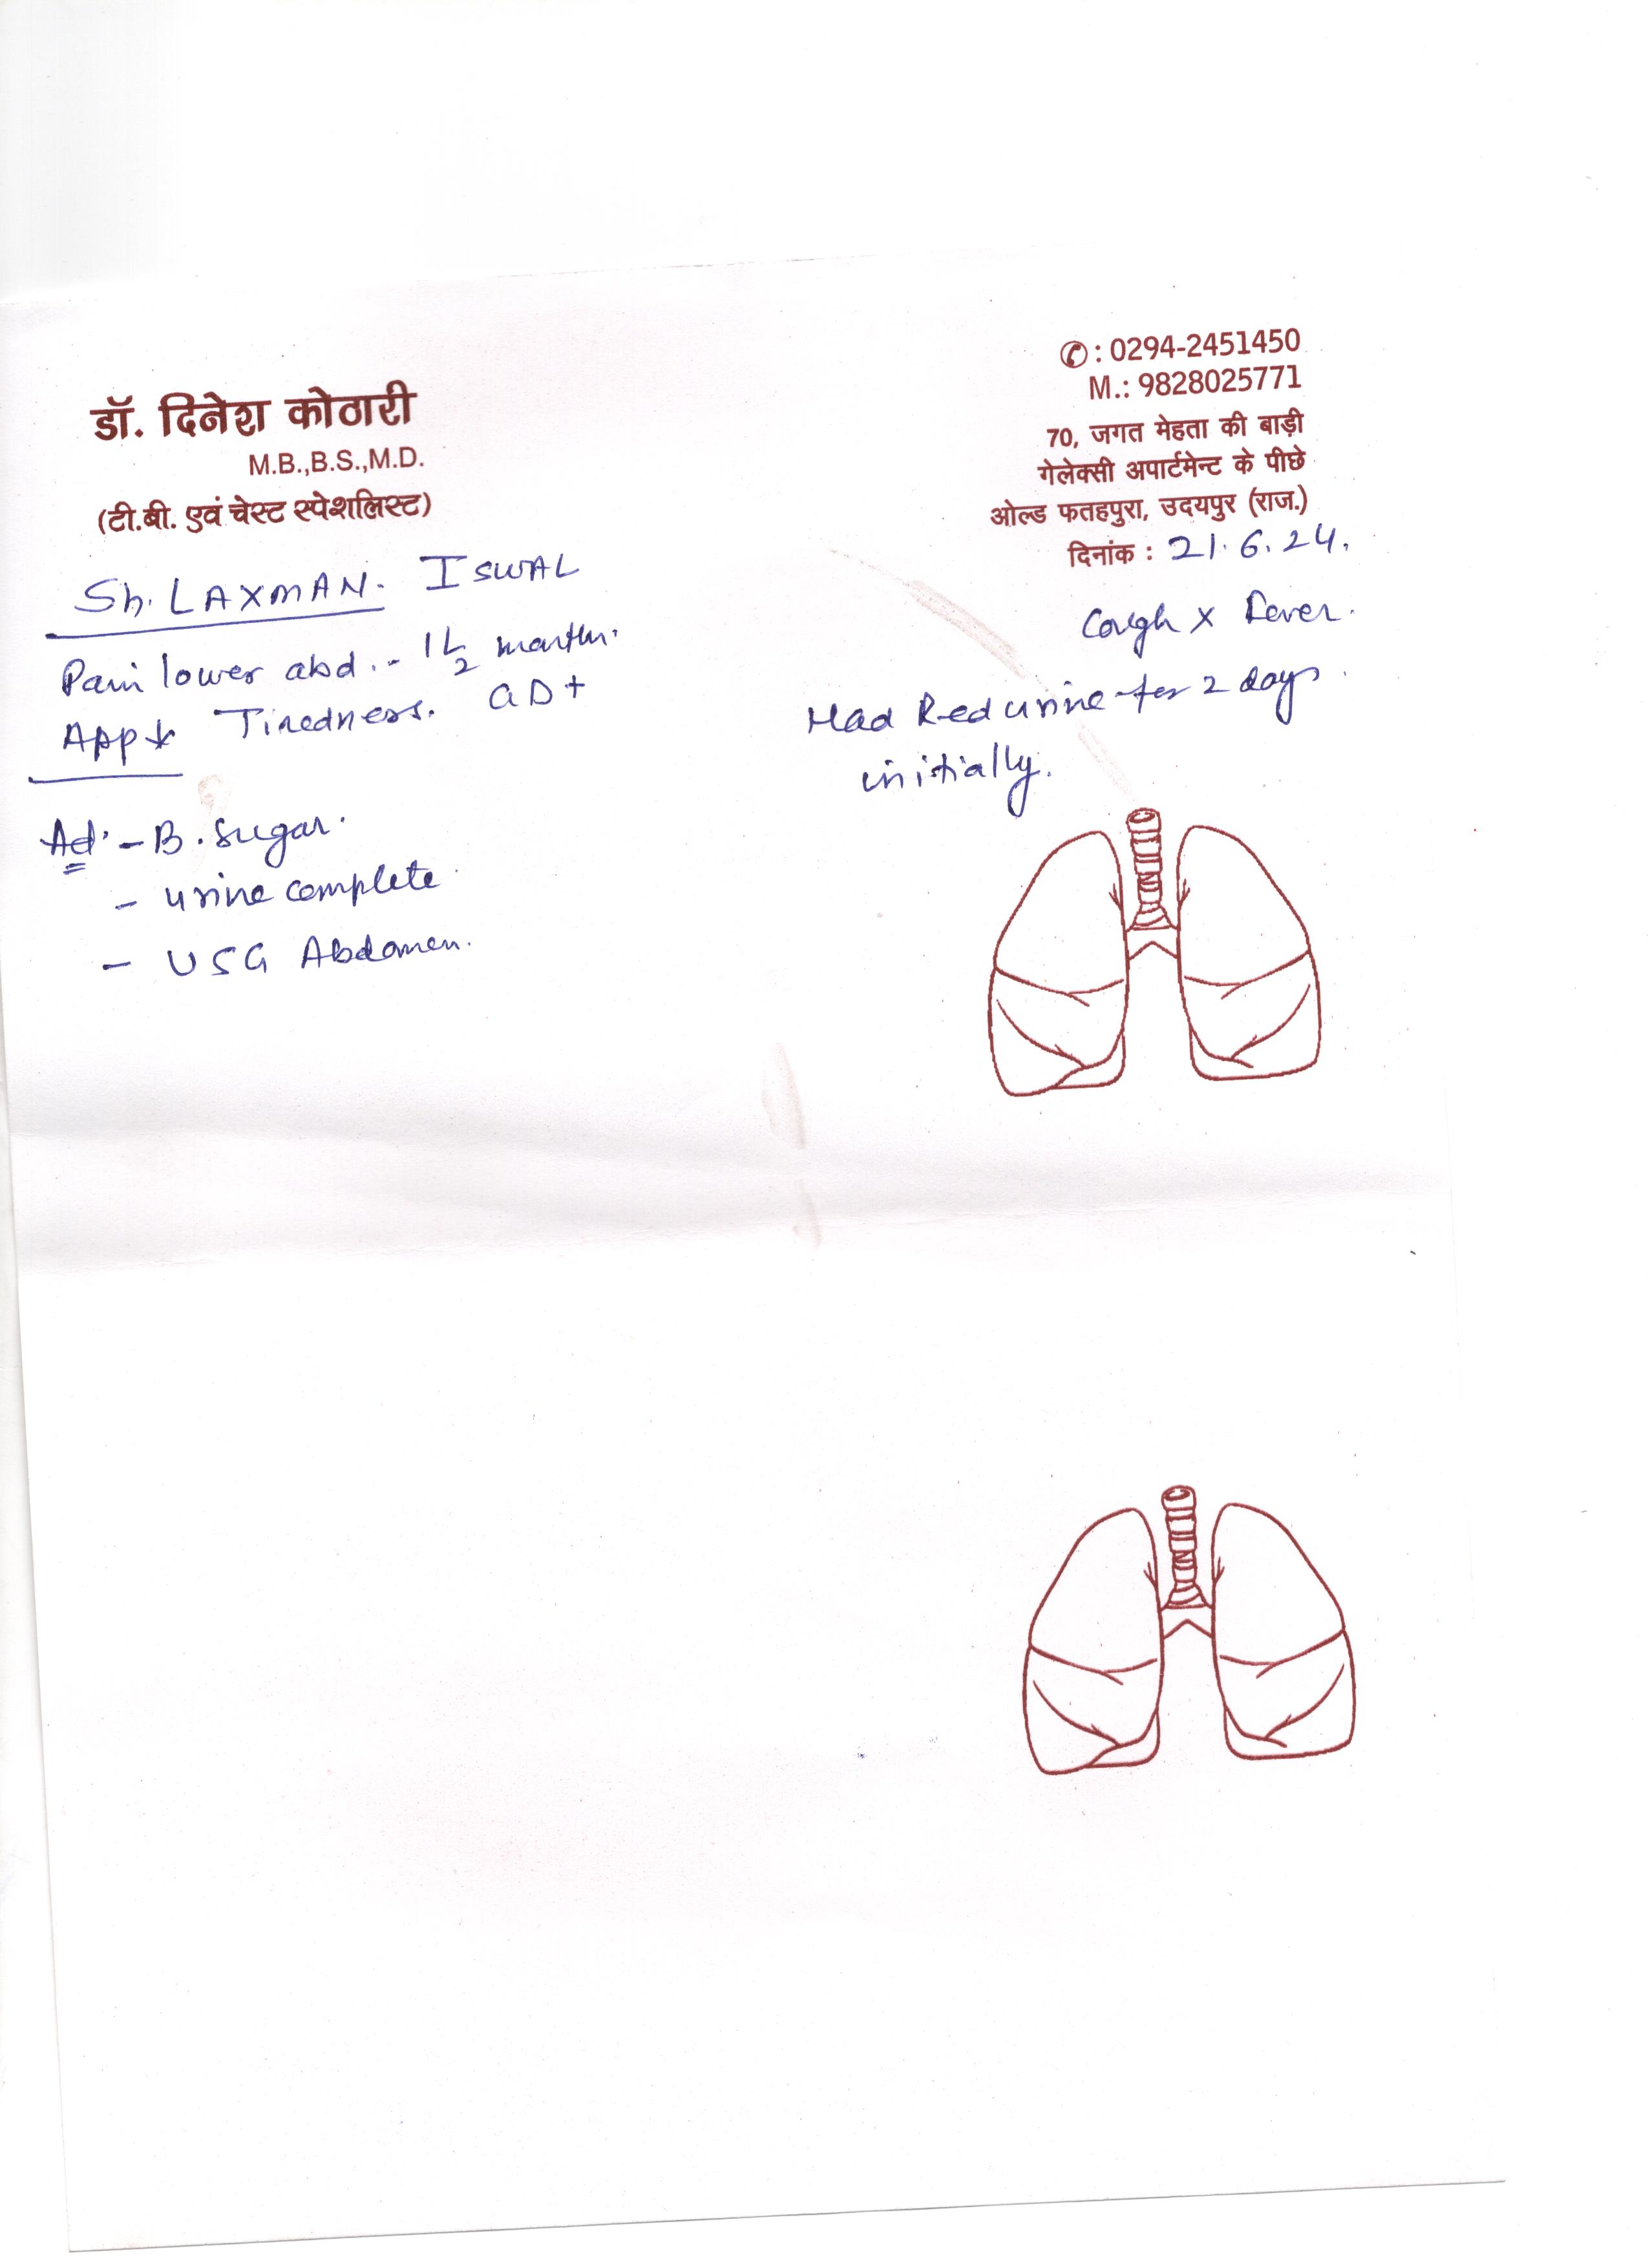 डॉ. दिनेश कोठारी
M.B.,B.S.,M.D.
(टी.बी. एवं चेस्ट स्पेशलिस्ट)
✆ : 0294-2451450
M.: 9828025771
70, जगत मेहता की बाड़ी
गेलेक्सी अपार्टमेन्ट के पीछे
ओल्ड फतहपुरा, उदयपुर (राज.)
दिनांक : 21.6.24.
Sh. LAXMAN. ISWAL
Pain lower abd. - 1 1/2 month.
App↓ Tiredness.
Cough x Fever.
Had Red urine for 2 days
initially.
Ad. - B. Sugar.
- urine complete
- USG Abdomen.